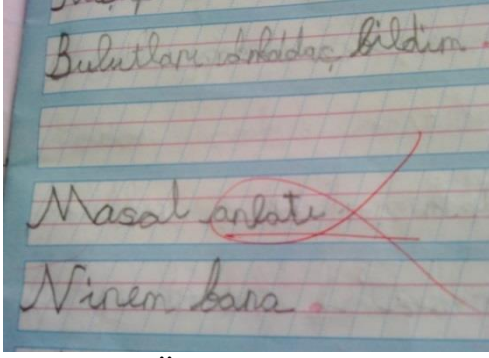 Bulutları arkadaş bildim.
Masal anlatı
Ninem bana.